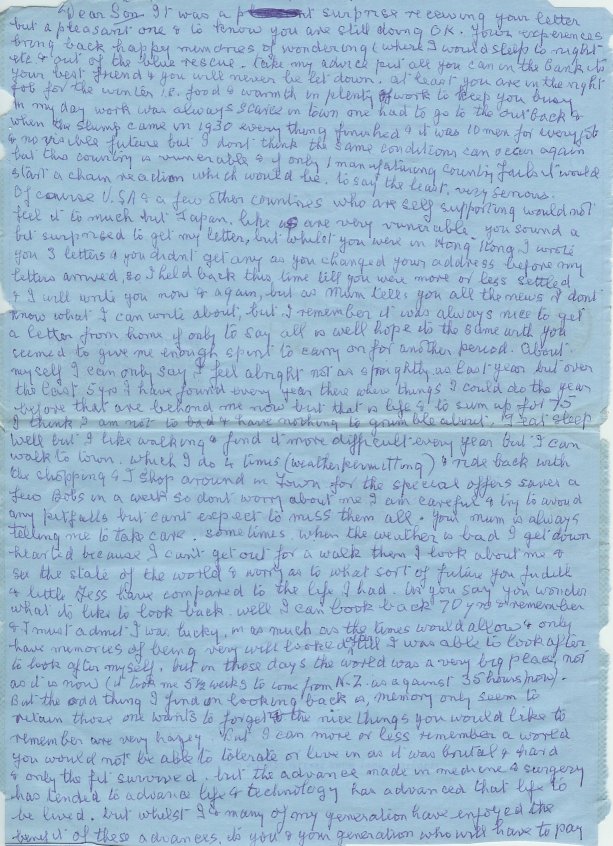 Dear Son It was a surprise receiving your letter
but a pleasant one & to know you are still doing OK. Your experiences
bring back happy memories of wondering (where I would sleep to night
etc & out of the blue rescue. Take my advice put all you can in the Bank its
your best friend & you will never be let down, at least you are in the right
job for the winter i.e. food & warmth in plenty of work to keep you busy
in my day work was always scarce in town one had to go to the out back &
when the slump came in 1930 every thing finished & it was 10 men for every job
& no visible future but I don't think the same conditions can occur again
but this country is vunerable & if only 1 manufaturing country fails it would
start a chain reaction which would be, to say the least, very serious.
Of course U.S.A & a few other countries who are self supporting would not
feel it to much but Japan, like us are very vunerable. you sound a
bit surprised to get my letter, but whilst you were in Hong Kong I wrote
you 3 letters & you didnt get any as you changed your address before my
letters arrived, so I held back this time till you were more or less settled
& I will write you now & again, but as Mum tells you all the news I dont
know what I can write about, but I remember it was always nice to get
a letter from home if only to say all is well hope do the same with you
seemed to give me enough spirit to carry on for another period. About
myself I can only say I feel alright not as sprightly as last year but over
the last 5 yrs I have found every year there when things I could do the year
before that are behond me now but that is life & to sum up for 75
I think I am not to bad & have nothing to grumble about. I eat sleep
well but I like walking & find it more difficult every year but I can
walk to town. which I do 4 times (weatherpermitting) & ride back with
the chopping & I shop around in town for the special offers saves a
few Bobs in a week so dont worry about me I am careful & try to avoid
any pitfalls but cant expect to miss them all. Your mum is always
telling me to take care. some times when the weather is bad I get down
hearted because I cant get out for a walk then I look about me &
see the state of the world & worry as to what sort of future you Judith
& little Jess have compared to the life I had. as you say you wonder
what do like to look back. well I can look back 70 yrs & remember
& I must admit I was lucky, in as much as the times would allow & only
have memories of being very well looked till I was able to look after
to look after myself. but in those days the world was a very big place, not
as it is now (it took me 5½ weeks to come from N.Z. as against 35 hours now).
But the odd thing I find on looking back is, memory only seem to
retain those one wants to forget & the nice things you would like to
remember are very hazey. but I can more or less remember a world
you would not be able to tolerate or live in as it was brutal & hard
& only the fit survived. but the advance made in medicine & surgery
has tended to advance life & technology has advanced that life to
be lived. but whilst I & many of my generation have enjoyed the
benefit of these advances, its you & your generation who will have to pay